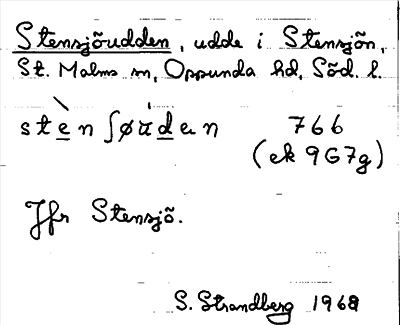 Stensjöudden, udde i Stensjön,
St. Malms sn, Oppunda hd, Söd. l.
sten ʃøud̲en 766
(ek 9G7g)
Jfr Stensjö.
S. Strandberg 1968